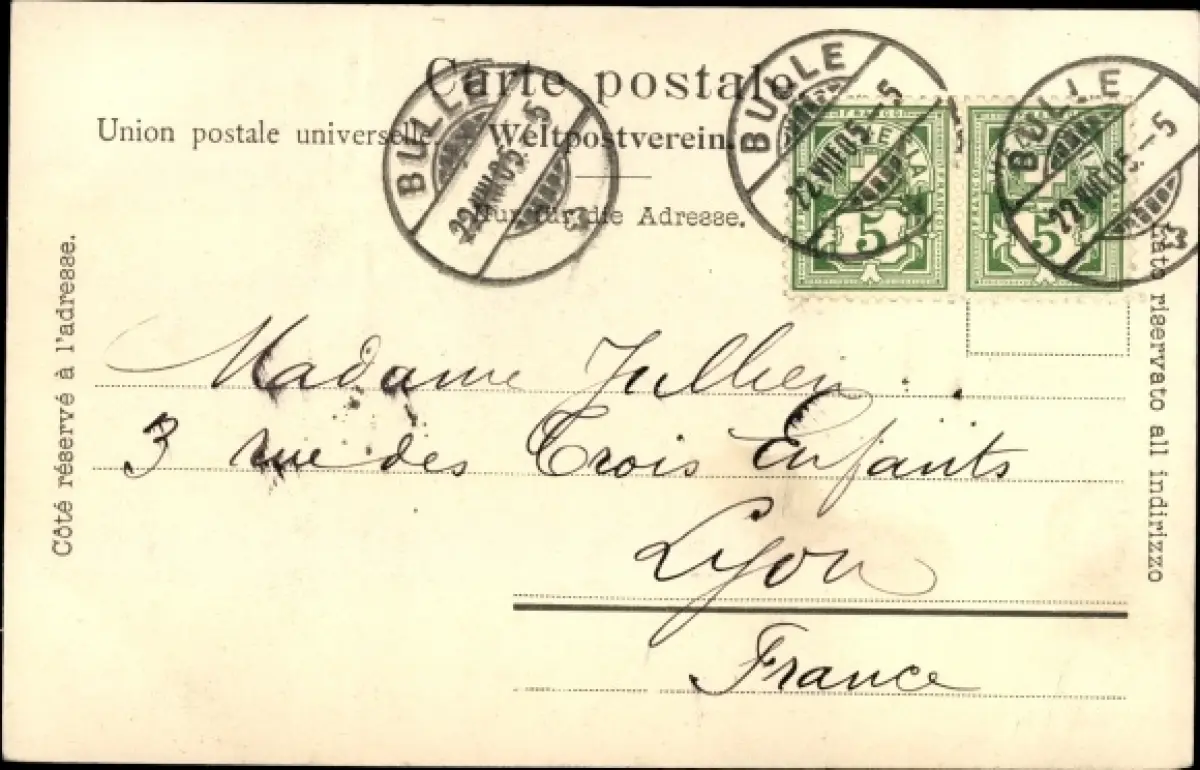 Carte postale
Union postale universelle. Weltpostverein.
Nur für die Adresse.
Côté réservé à l'adresse.
riservato all indirizzo
BULLE
22.VIII.05.-5
BULLE
22.VIII.05.-5
HELVETIA
FRANCO
5
BULLE
22.VIII.05.-5
FRANCO
5
Madame Jullien
3 rue des Trois Enfants
Lyon
France